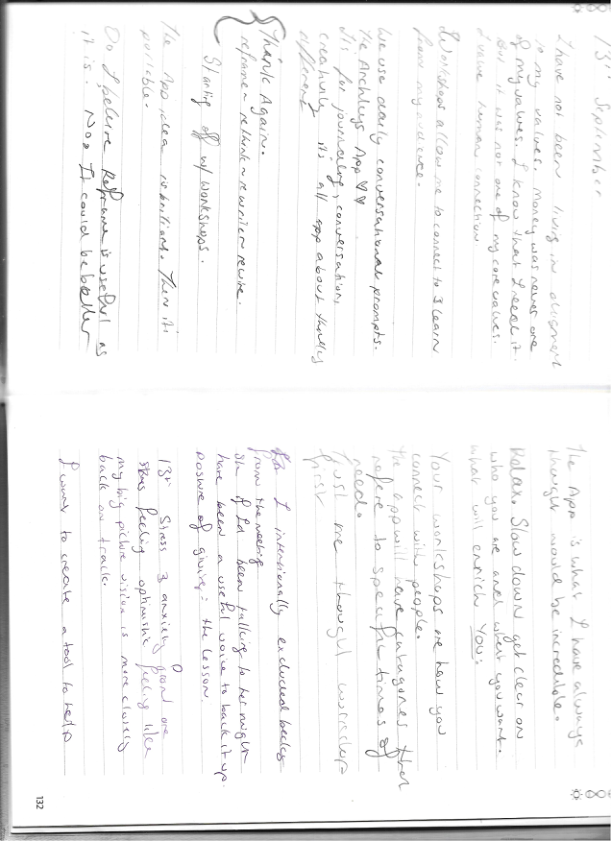 13th September
I have not been living in alignment
to my values. Money was never one
of my values. I know that I need it.
But it was not one of my core values.
I value human connection
Workshops allow me to connect to & learn
from my audience.
We use daily conversational prompts.
the Archleys App ♡♡
It's for journaling, conversation,
creativity it's all app about things
different
Think Again.
reframe ~ rethink ~ rewrite ~ rewire.
Starting off w/ workshops.
The App idea is brilliant. Then it's
portable.
Do I believe Reframe is useful as
it is? No. It could be better
The App is what I have always
thought would be incredible.
Relax. Slow down get clear on
who you are and what you want.
What will enrich YOU?
Your workshops are how you
connect with people.
The app will have categories that
refere to specific times of
need.
Trust me though workshop
first
I intentionally excluded
from the meeting
if I'd been talking to her might
have been a useful voice to back it up.
posture of giving = the lesson.
13th Stress & anxiety front are
feeling optimistic feeling like
my big picture vision is more closely
back on track.
I want to create a tool to help
132